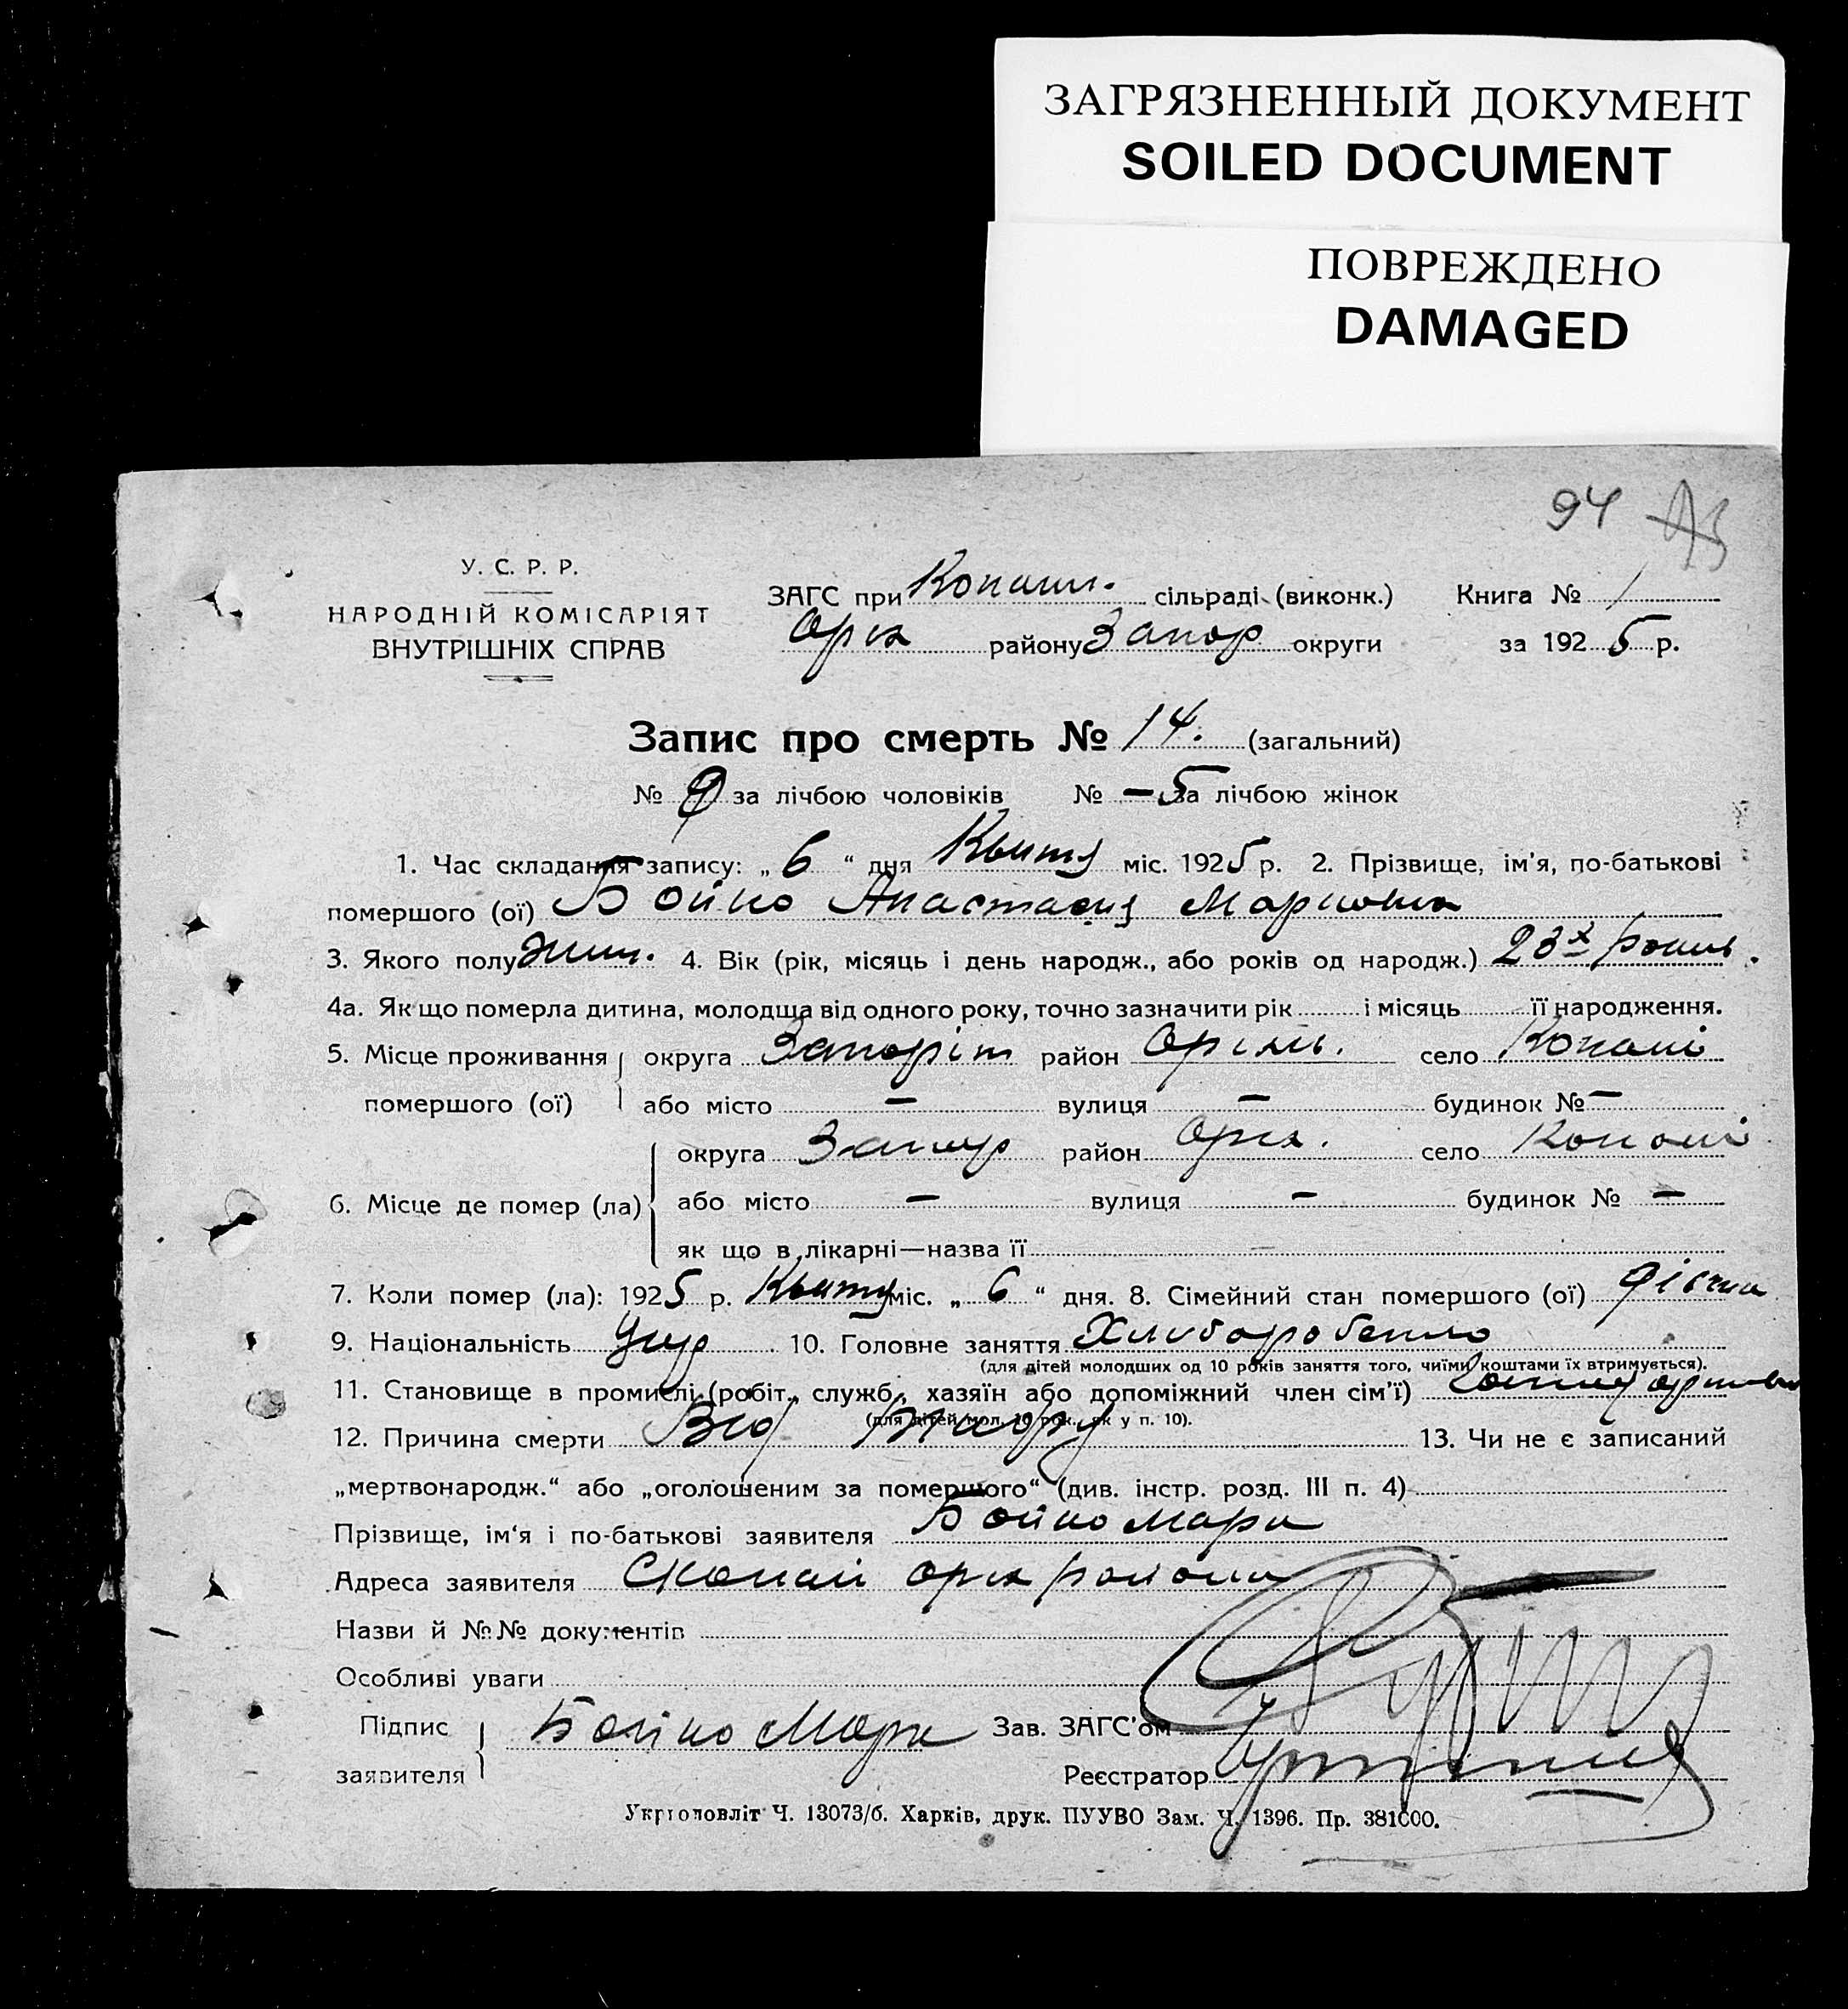 ЗАГРЯЗНЕННЫЙ ДОКУМЕНТ
SOILED DOCUMENT
ПОВРЕЖДЕНО
DAMAGED
94
У. С. Р. Р.
НАРОДНІЙ КОМІСАРІЯТ
ВНУТРІШНІХ СПРАВ
ЗАГС при Копани. сільраді (виконк.) Книга № 1
Оріх району Запор округи за 1925 р.
Запис про смерть № 14. (загальний)
№ 9 за лічбою чоловіків № – 5 за лічбою жінок
1. Час складання запису: „ 6 “ дня Квітня міс. 1925 р. 2. Прізвище, ім'я, по-батькові
помершого (ої) Бойко Анастасия Марковна
3. Якого полу жин. 4. Вік (рік, місяць і день народж., або років од народж.) 23х років.
4а. Як що померла дитина, молодща від одного року, точно зазначити рік і місяць її народження.
5. Місце проживання округа Запоріж район Оріхів. село Копані
помершого (ої) або місто – вулиця – будинок № –
округа Запор район Оріх. село Копані
6. Місце де помер (ла) або місто – вулиця – будинок № –
як що в лікарні—назва її –
7. Коли помер (ла): 1925 р. Квітня міс. „ 6 “ дня. 8. Сімейний стан помершого (ої) дівчина
9. Національність Укр 10. Головне заняття Хлиборобство
(для дітей молодших од 10 років заняття того, чиїми коштами їх втримується).
11. Становище в промислі (робіт., служб., хазяїн або допоміжний член сім'ї)
(для дітей мол. 10 рок., як у п. 10).
12. Причина смерти Від 13. Чи не є записаний
„мертвонародж.“ або „оголошеним за помершого“ (див. інстр. розд. III п. 4)
Прізвище, ім'я і по-батькові заявителя Бойко Марк
Адреса заявителя С Копани Оріх району
Назви й №№ документів
Особливі уваги
Підпис заявителя Бойко Марк Зав. ЗАГС'ом
Реєстратор
Укрголовліт Ч. 13073/б. Харків, друк. ПУУВО Зам. Ч. 1396. Пр. 381000.